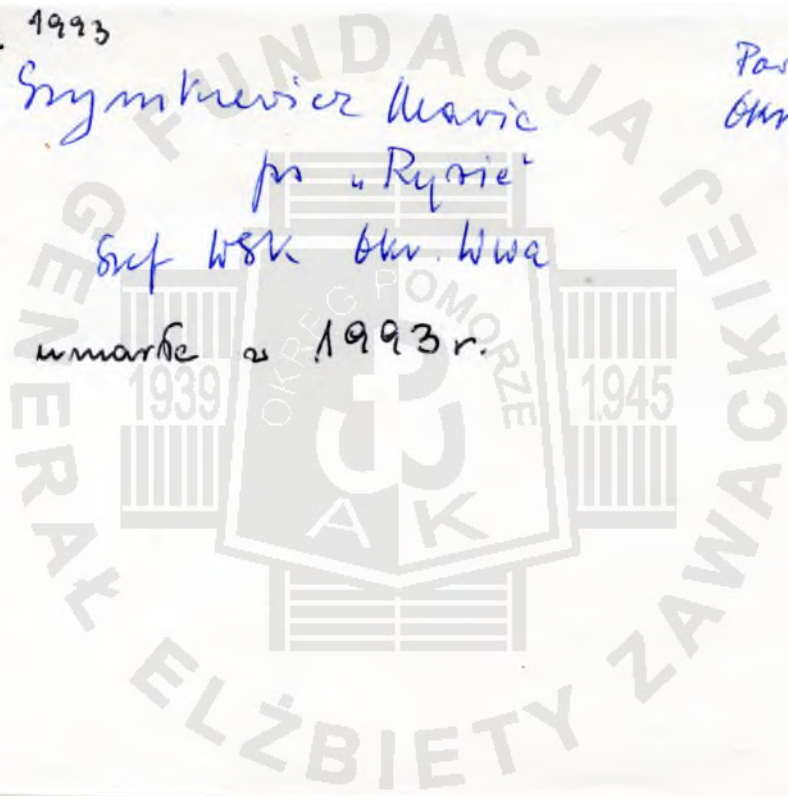 1993
Szymkiewicz Maria
ps „Rysia"
Szef WSK Okr. Wwa
umarła w 1993 r.
Okr
FUNDACJA GENERAŁ ELŻBIETY ZAWACKIEJ
OKRĘG POMORZE
1939
1945
AK